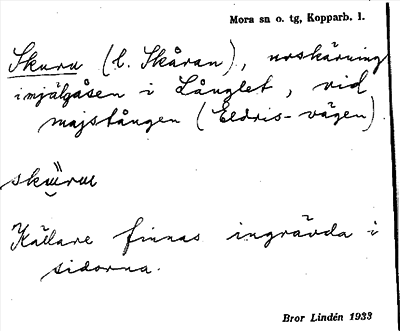 Mora sn o. tg, Kopparb. l.
Skuru (l. Skåran), urskärning
i mjälgåsen i Långlet, vid
majstången (Eldris-vägen).
Källare finnas ingrävda i
sidorna.
Bror Lindén 1933